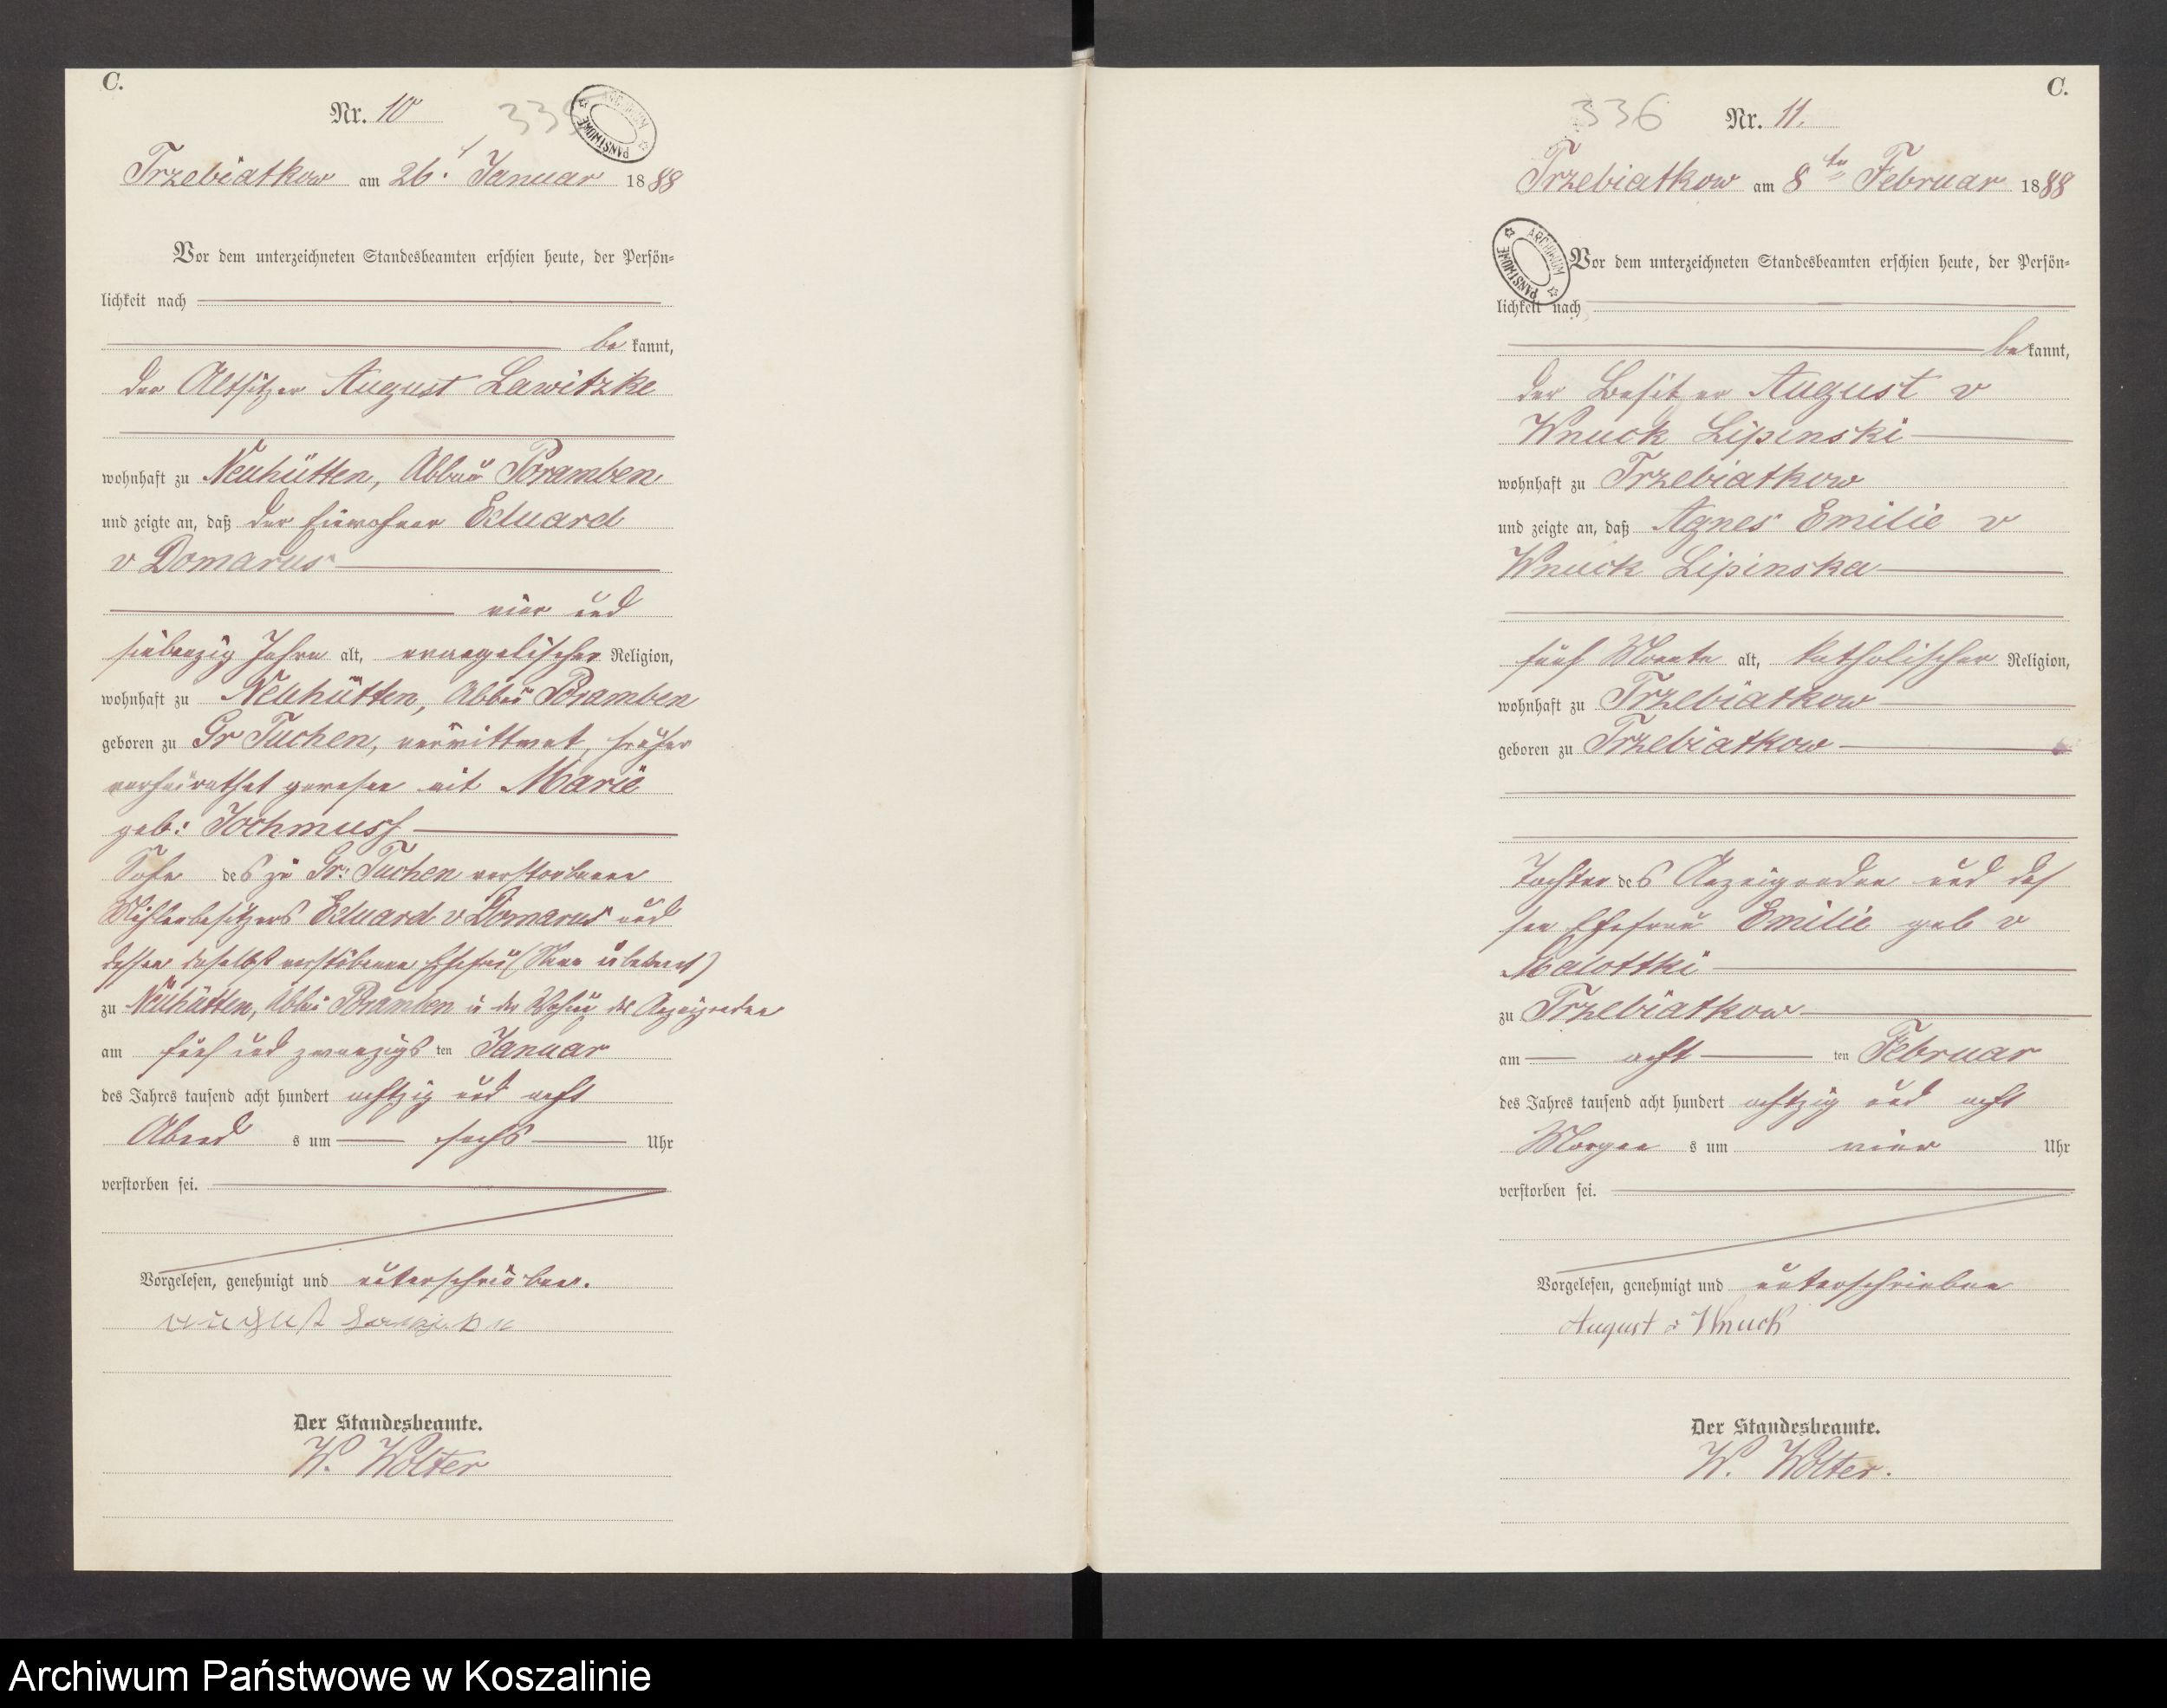 C.
Nr. 10
335
ARCHIWUM PAŃSTWOWE
Trzebiatkow am 26. Januar 1888
Vor dem unterzeichneten Standesbeamten erschien heute, der Persön-
lichkeit nach
be kannt,
der Altsitzer August Lawitzke
wohnhaft zu Neuhütten, Abbau Poramben
und zeigte an, daß der Einwohner Eduard
v Domarus
vier und
siebenzig Jahre alt, evangelischer Religion,
wohnhaft zu Neuhütten, Abbau Poramben
geboren zu Gr Tuchen, verwittwet, früher
verheirathet gewesen mit Marie
geb: Jochmuss
Sohn des zu Gr: Tuchen verstorbenen
Mühlenbesitzers Eduard v Domarus und
dessen daselbst verstorbenen Ehefrau (Name unbekannt)
zu Neuhütten, Abbau Poramben in der Wohnung des Anzeigenden
am fünf und zwanzigs ten Januar
des Jahres tausend acht hundert achtzig und acht
Abend s um sechs Uhr
verstorben sei.
Vorgelesen, genehmigt und unterschrieben.
august
Der Standesbeamte.
W. Wolter
C.
336
Nr. 11.
Trzebiatkow am 8ten Februar 1888
ARCHIWUM PAŃSTWOWE
Vor dem unterzeichneten Standesbeamten erschien heute, der Persön-
lichkeit nach
be kannt,
der Besitzer August v
Wnuck Lipinski
wohnhaft zu Trzebiatkow
und zeigte an, daß Agnes Emilie v
Wnuck Lipinska
fünf Monate alt, katholischer Religion,
wohnhaft zu Trzebiatkow
geboren zu Trzebiatkow
Tochter des Anzeigenden und des
sen Ehefrau Emilie geb v
Malottki
zu Trzebiatkow
am acht ten Februar
des Jahres tausend acht hundert achtzig und acht
Morgen s um vier Uhr
verstorben sei.
Vorgelesen, genehmigt und unterschrieben
August v Wnuck
Der Standesbeamte.
W. Wolter.
Archiwum Państwowe w Koszalinie